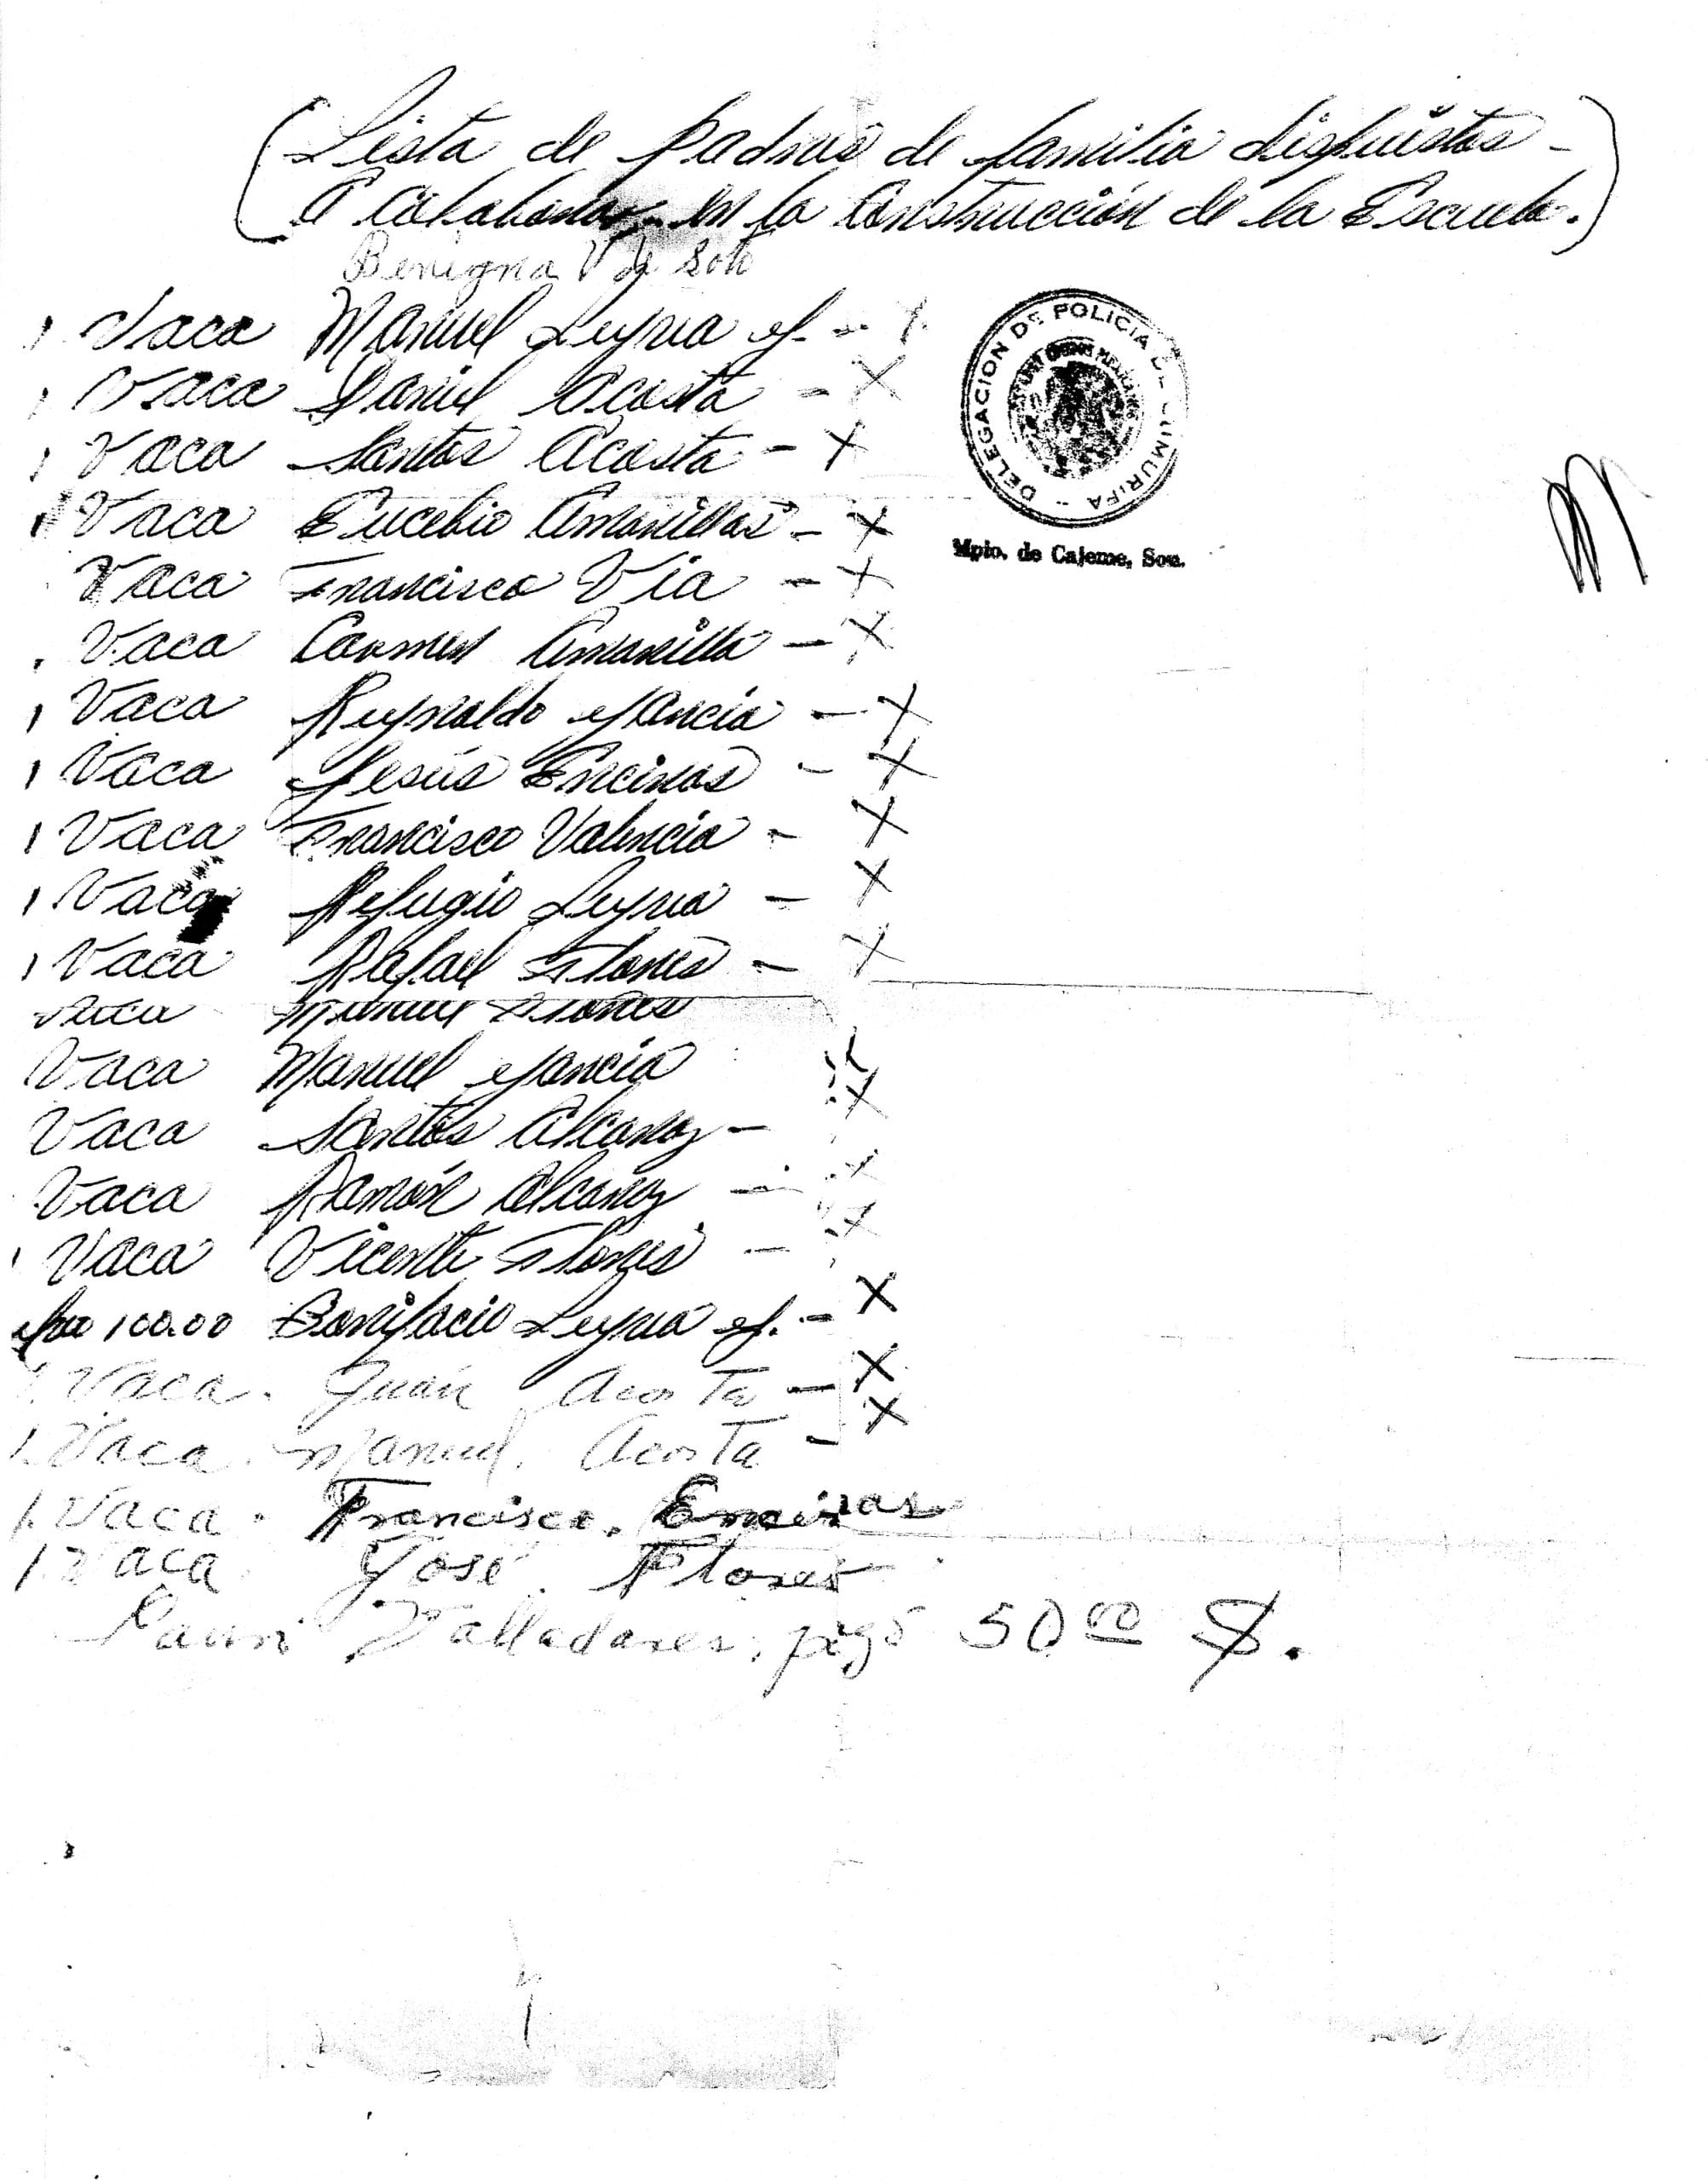 (Lista de padres de familia dispuestos -
a colaborar en la Construcción de la Escuela.)
Benigna V de Soto
1 Vaca Manuel Leyva G. - X
1 Vaca Daniel Acosta - X
1 Vaca Santos Acosta - X
1 Vaca Eucebio Amarillas - X
Vaca Francisco Via - X
Vaca Carmen Amarilla - X
1 Vaca Reynaldo García - X
1 Vaca Jesús Encinas - X
1 Vaca Francisco Valencia - X
1 Vaca Refugio Leyva - X
1 Vaca Rafael Flores - X
Vaca Manuel Flores
Vaca Manuel García X
Vaca Santos Alcaraz - X
Vaca Ramón Alcaraz - X
1 Vaca Vicente Flores - X
100.00 Bonifacio Leyva G. - X
1 Vaca. Juán Acosta - X
1. Vaca. Manuel. Acosta - X
1. Vaca. Francisco. Encinas
1 Vaca José. Flores
Valladares, pagó 50.00 $.
DELEGACION DE POLICIA DE CUMURIPA
ESTADOS UNIDOS MEXICANOS
Mpio. de Cajeme, Son.